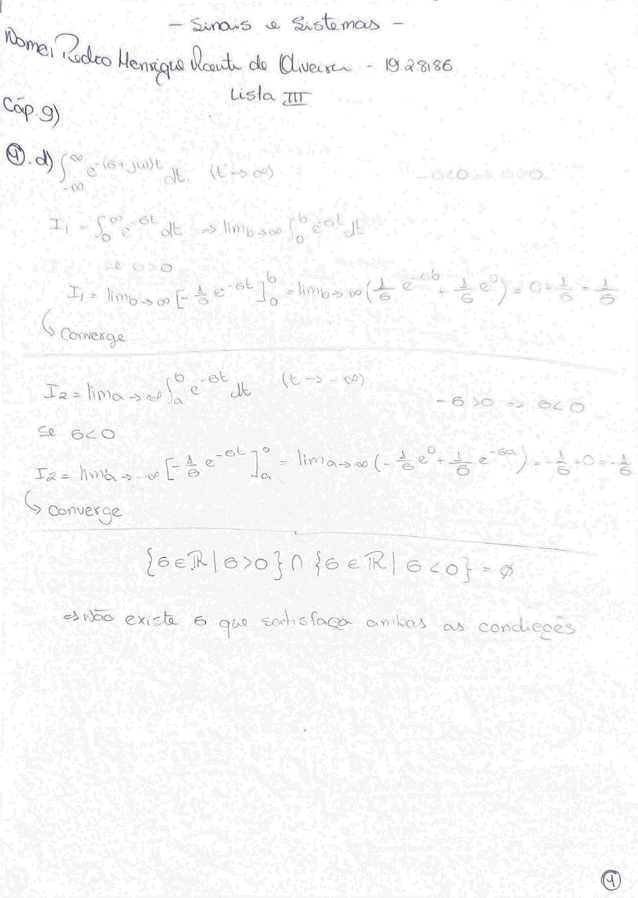 - Sinais e Sistemas -
Nome: Pedro Henrique Vicente de Oliveira - 1928186
Lista III
Cáp. 9)
①.d) ∫_{-∞}^{∞} e^{-(σ+jω)t} dt. (t→∞) -σ<0 => σ>0.
I₁ = ∫_0^∞ e^{-σt} dt => lim b→∞ ∫_0^b e^{-σt} dt
se σ>0
I₁ = lim b→∞ [-1/σ e^{-σt}]_0^b = lim b→∞ (-1/σ e^{-σb} + 1/σ e^0) = 0 + 1/σ = 1/σ
↳ Converge
I₂ = lim a→-∞ ∫_a^0 e^{-σt} dt (t→ -∞) -σ>0 => σ<0
se σ<0
I₂ = lim a→-∞ [-1/σ e^{-σt}]_a^0 = lim a→∞ (-1/σ e^0 + 1/σ e^{-σa}) = -1/σ + 0 = -1/σ
↳ converge
{σ∈ℝ | σ>0} ∩ {σ∈ℝ | σ<0} = ∅
=> Não existe σ que satisfaça ambas as condições
④